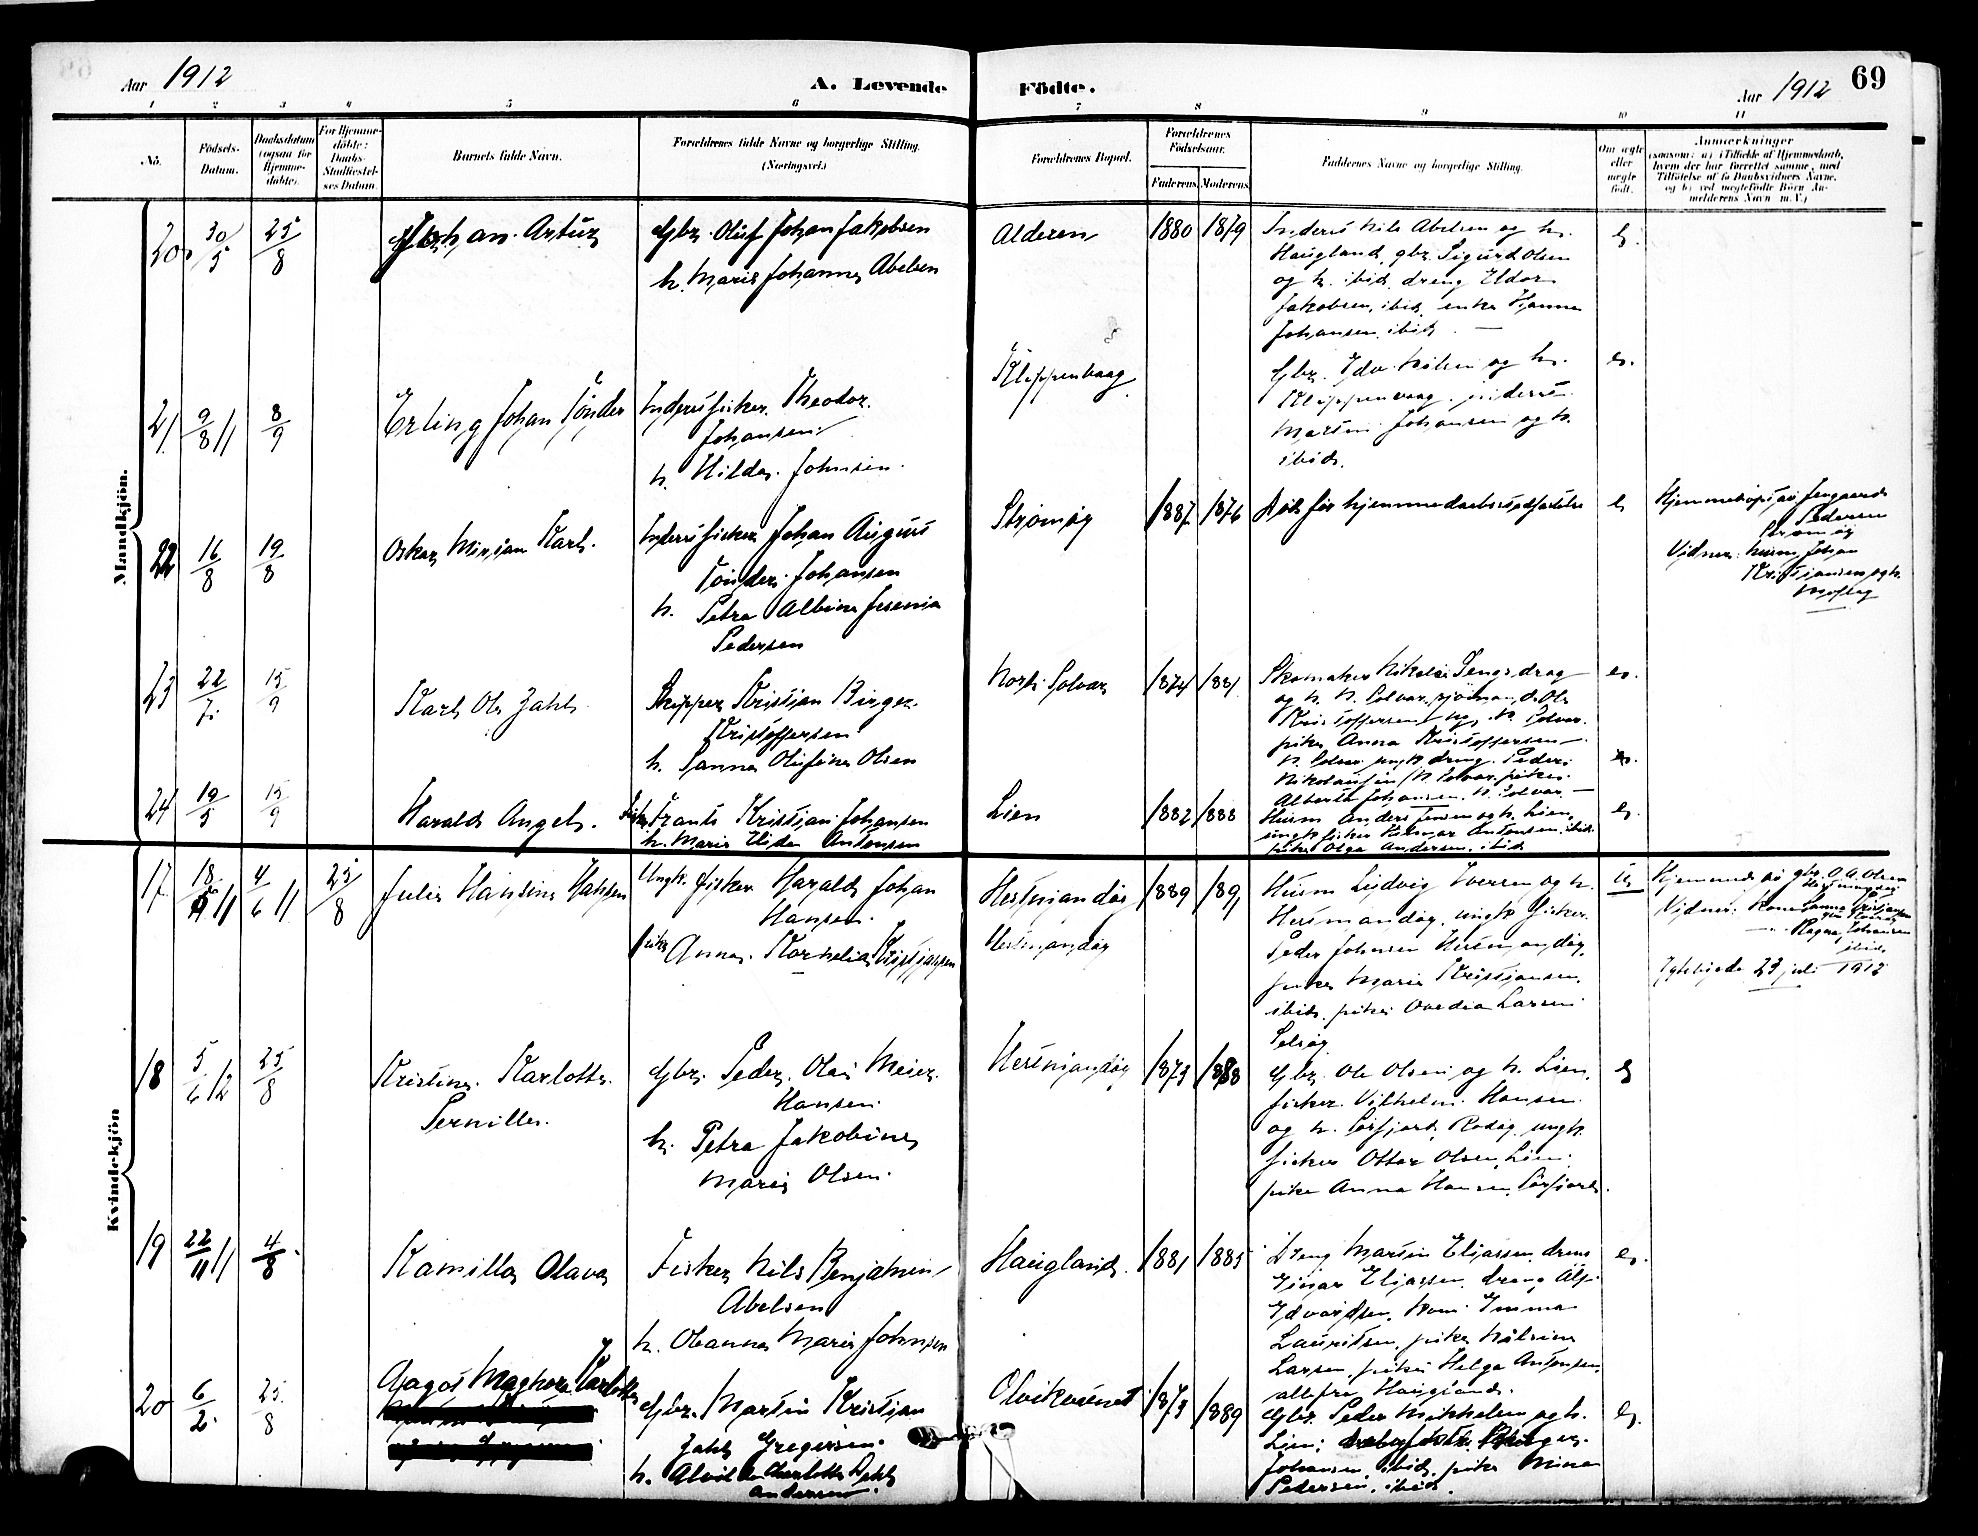 Aar 1912
A. Levende
Födte.
Aar 1912
69
1 2 3 4 5 6 7 8 9 10 11
No.
Födsels-Datum.
Daabsdatum (ogsaa for Hjemme-döbte).
For Hjemme-döbte: Daabs-Stadfæstel-ses Datum.
Barnets fulde Navn.
Forældrenes fulde Navne og borgerlige Stilling. (Næringsvei.)
Forældrenes Bopæl.
Forældrenes Födselsaar.
Faderens. Moderens.
Faddernes Navne og borgerlige Stilling.
Om ægte eller uægte födt.
Anmærkninger
(saasom: a) i Tilfælde af Hjemmedaab, hvem der har forrettet samme, med Tilföielse af to Daabsvidners Navne, og b) ved uægtefödte Börn An-melderens Navn m. V.)
Mandkjön.
20 30/5 25/8
Johan Artur
Gbr. Oluf Johan Jakobsen
h. Marie Johanna Abelsen
Alderen
1880 1879
Inderst Nils Abelsen og h.
Haugland, gbr. Sigurd Olsen
og h. ibid, dreng Eldor
Jakobsen, ibid, enke Hanna
Johansen ibid. —
e.
21. 9/8 11 8/9
Erling Johan Tönder
Inderst fisker Theodor
Johansen
h. Hilda Johnsen.
Kleppenvaag
Gbr. Edv. Nilsen og h.
Kleppenvaag, inderst
Martin Johansen og h.
ibid.
e.
22 16/8 19/8
Oskar Mirjam Karl.
Inderst fisker Johan August
Tönder Johansen
h. Petra Albine Jesenia
Pedersen
Strömöy
1887 1876
Död för hjemmedaabsstadfæstelse
e
Hjemmedöpt av
Pedersen
Strömöy
Vidner: husm. Johan
Kristjansen og h.
23 22/7. 15/9
Karl Ole Zahl.
Skipper Kristjan Birger
Kristoffersen
h. Sanna Olufine Olsen
Nord-Solvær
1874 1881
Skomaker Nikolai Tengsdrag
og h. N. Solvær, Ole
Kristoffersen N. Solvær.
pike Anna Kristoffersen
N. Solvær, ungk. dreng Peder
Nikolaisen, N. Solvær, pike
Alberta Johansen, N. Solvær. —
e.
24 19/5 15/9
Harald Angel.
Fisker Frants Kristjan Johansen
h. Marie Elida Antonsen
Lien
1882 1888
Husm Anders Jensen og h. Lien,
ungk. fisker Hilmar Antonsen, ibid.
pike Olga Andersen, ibid.
e.
Kvindekjön
17 11 4/6 11 25/8
Julie Hansine Hansen
Ungk. fisker Harald Johan
Hansen.
pike Anna Kornelia Kristjansen
Hestmandöy
Hestmandöy
1889 1891
Husm Ludvig Iversen og h.
Hestmandöy, ungk. fisker
Peder Johnsen Hestmandöy,
pike Marie Kristjansen,
ibid. pike Ovedia Larsen
Selsöy
U.
Hjemmed. av gbr. O. A. Olsen
Hestmandöy
Vidner: Kone Sanna Kristjansen
Ragna Johansen
ibid.
23 juli 1912
18 5/6 12 25/8
Kristine Karlotte
Pernille.
Gbr. Peder Olai Meier
Hansen.
h. Petra Jakobine
Marie Olsen.
Hestmandöy
1873 1888
Gbr. Ole Olsen og h. Lien,
fisker Vilhelm Hansen
og h. Sörfjord, Rödöy, ungk.
fisker Ottar Olsen, Lien,
pike Anna Hansen, Sörfjord.
e
19 22/11 11 4/8
Kamilla Olava
Fisker Nils Benjamin
Abelsen
h. Oleanna Marie Johnsen
Haugland.
1881 1885
Dreng Martin Eliassen, dreng
Einar Eliassen, dreng Alf
Edvardsen, kone Emma
Lauritsen, pike Nilsine
Larsen, pike Helga Antonsen,
alle fra Haugland.
e.
20 6/2. 25/8
Aagot Magnora Karlotte
Gbr. Martin Kristian
Zahl Gregersen.
h. Alvilde Charlotte Dahl
Andersen.
Olvikvernet
1873 1889
Gbr. Peder Mikkelsen og h.
Lien,
Johansen, ibid, pike Mina
Pedersen, ibid.
e.